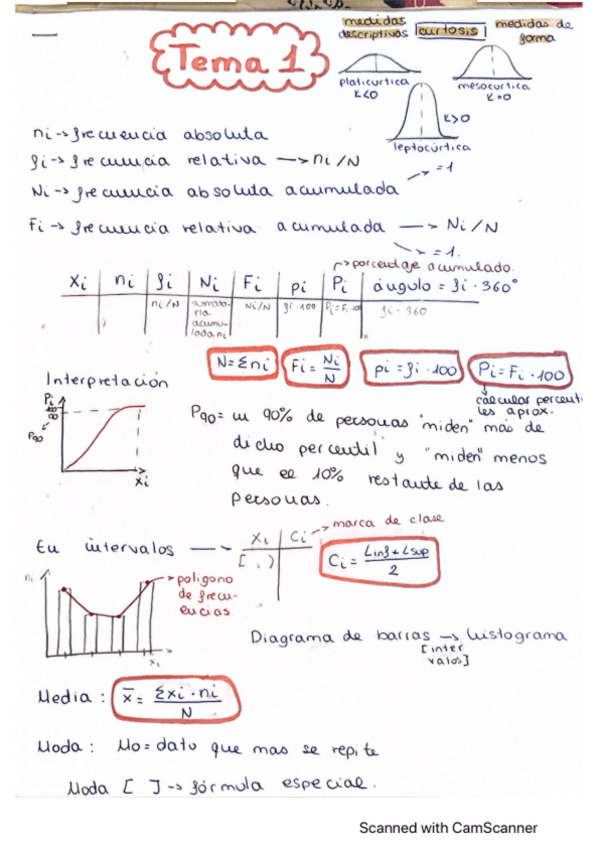 medidas descriptivas
curtosis
medidas de forma
Tema 1
platicurtica
K<0
mesocurtica
K=0
K>0
leptocúrtica
ni → frecuencia absoluta
fi → frecuencia relativa → ni/N
→ =1
Ni → frecuencia absoluta acumulada
Fi → frecuencia relativa acumulada → Ni/N
→ =1.
→ porcentaje acumulado.
Xi | ni | fi | Ni | Fi | pi | Pi | ángulo = fi · 360°
ni/N | sumatoria acumulada ni | Ni/N | fi·100 | Pi=Fi·100 | fi · 360
N=Σni
Fi = Ni/N
pi = fi · 100
Pi = Fi · 100
calcular percenti
les aprox.
Interpretación
Pi
P90
Xi
P90 = un 90% de personas "miden" más de
dicho percentil y "miden" menos
que el 10% restante de las
personas.
En intervalos →
Xi | Ci → marca de clase
[ , )
Ci = Linf + Lsup / 2
ni
Xi
→ poligono
de frecu-
encias
Diagrama de barras → histograma
[inter
valos]
Media : x̄ = Σxi · ni / N
Moda : Mo = dato que mas se repite
Moda [ ] → fórmula especial.
Scanned with CamScanner